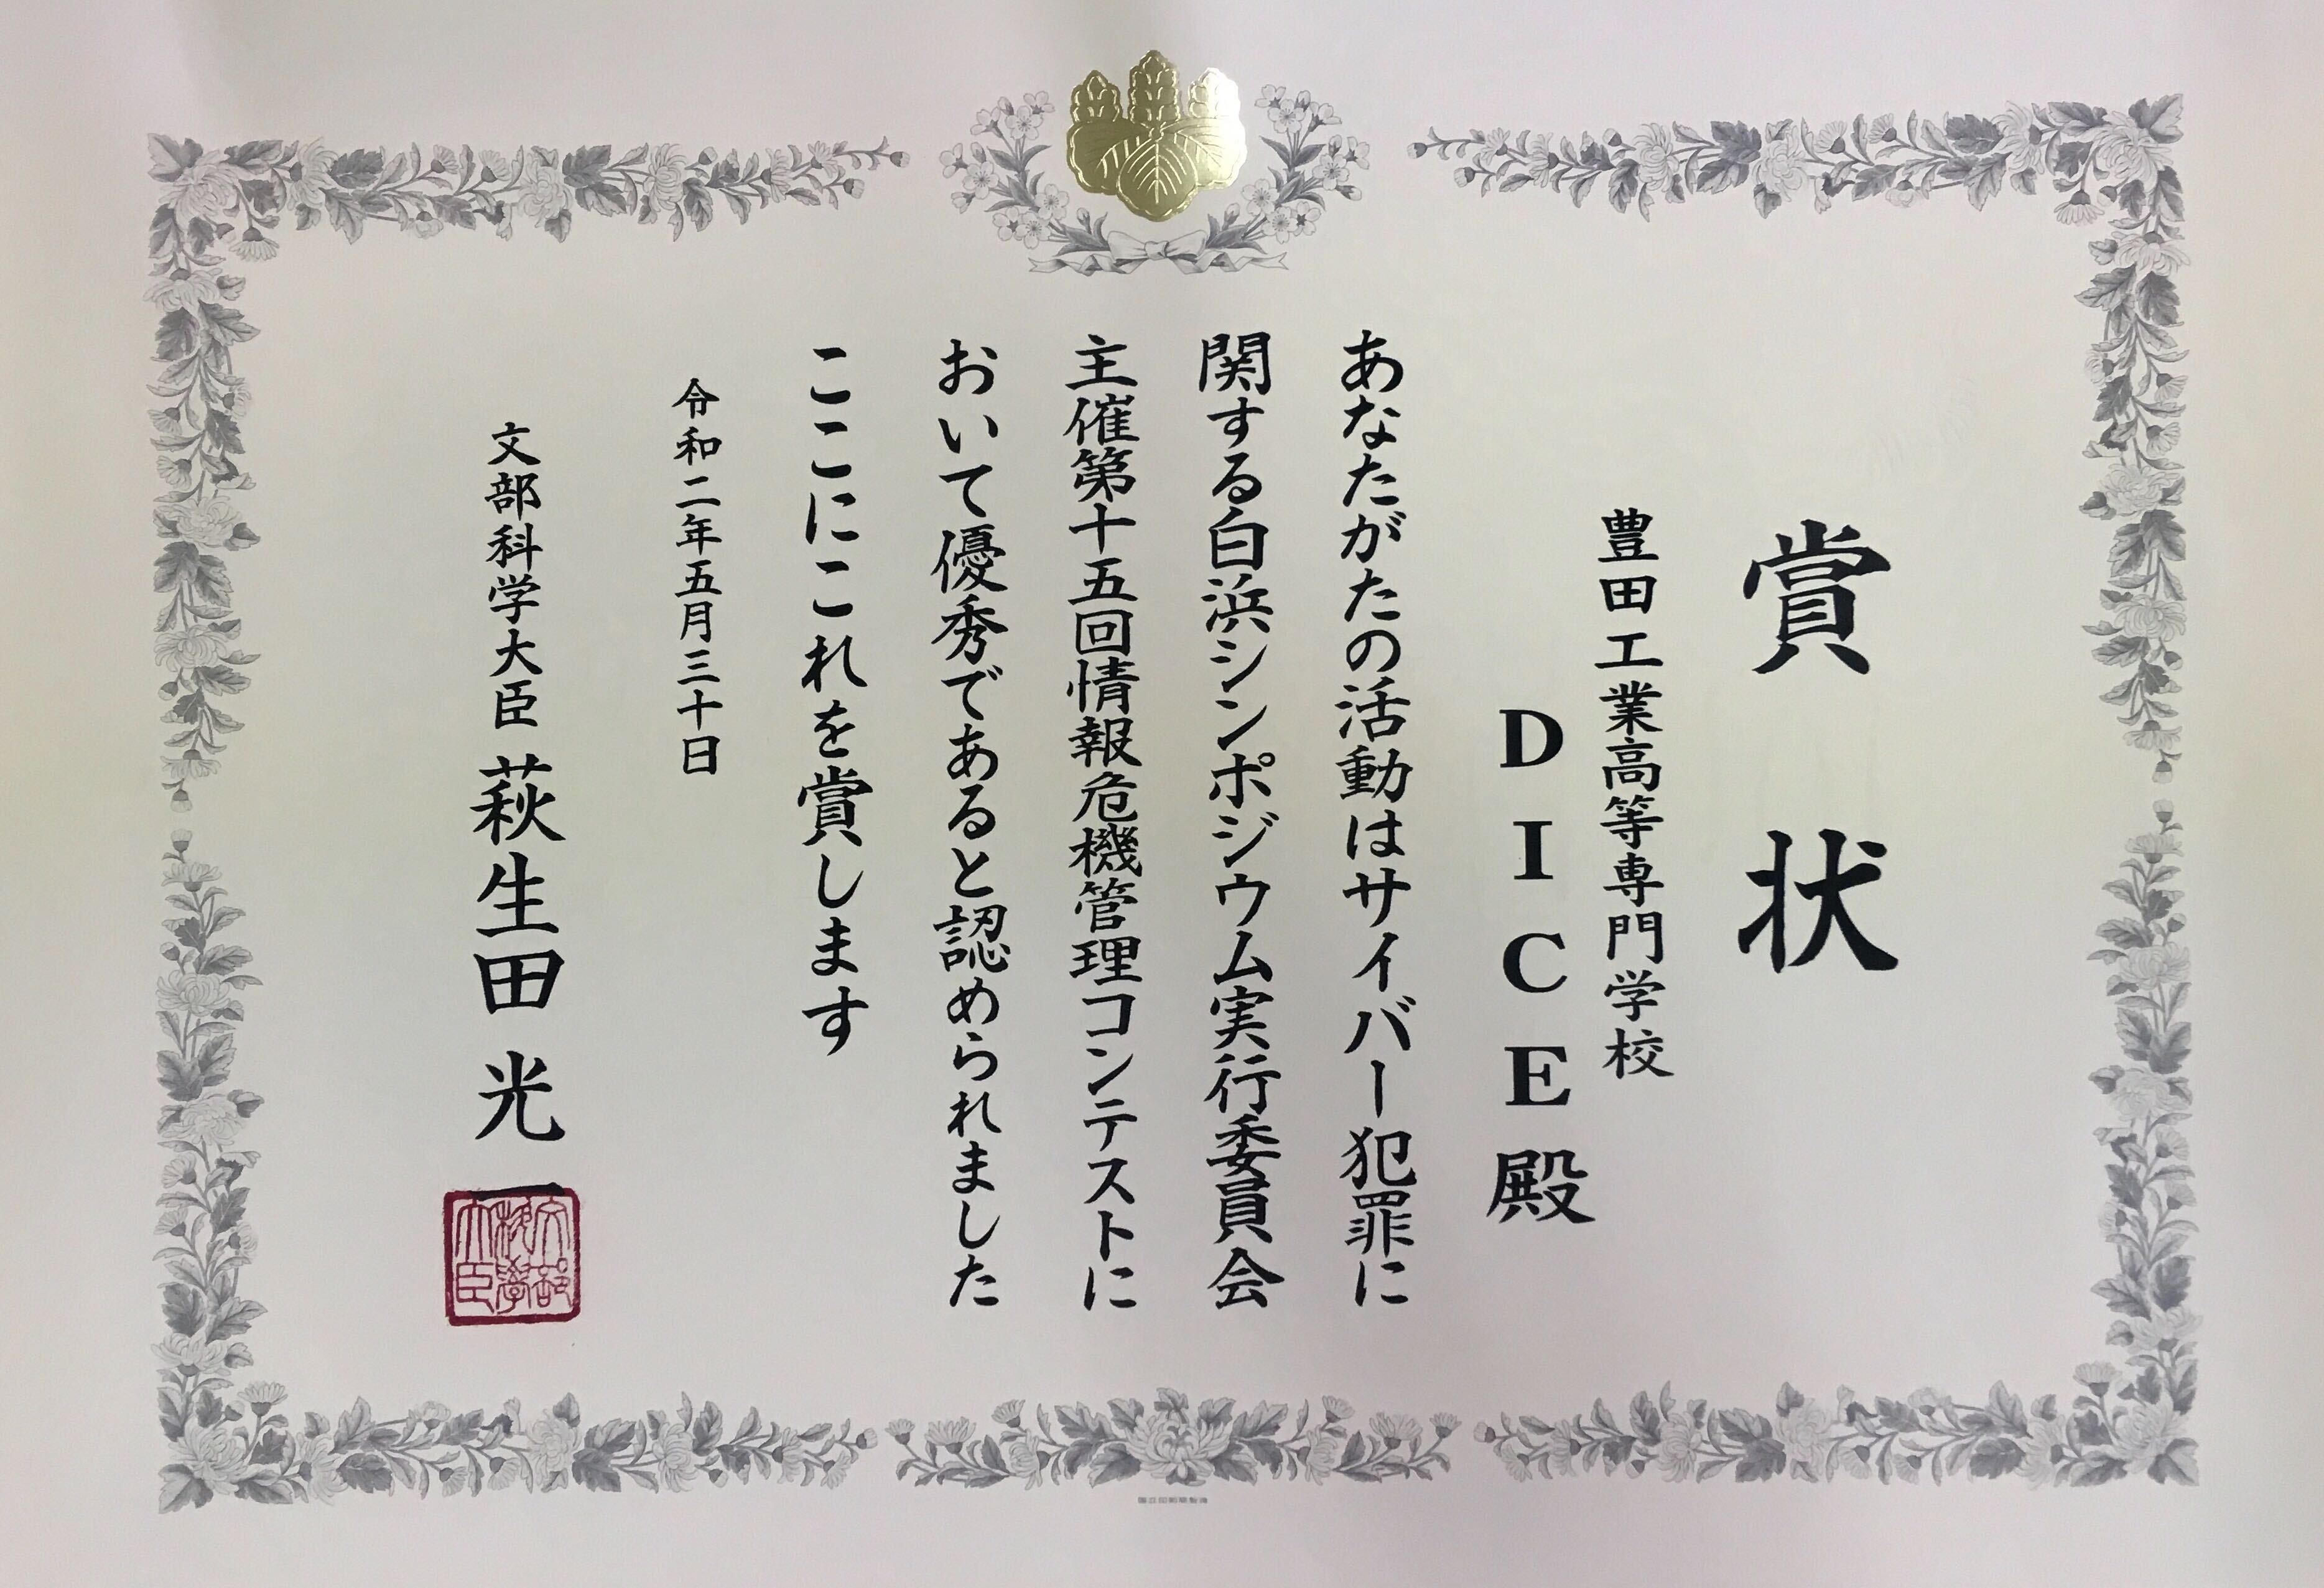 賞状
豊田工業高等専門学校
DICE殿
あなたがたの活動はサイバー犯罪に
関する白浜シンポジウム実行委員会
主催第十五回情報危機管理コンテストに
おいて優秀であると認められました
ここにこれを賞します
令和二年五月三十日
文部科学大臣 萩生田光一
文部科学大臣